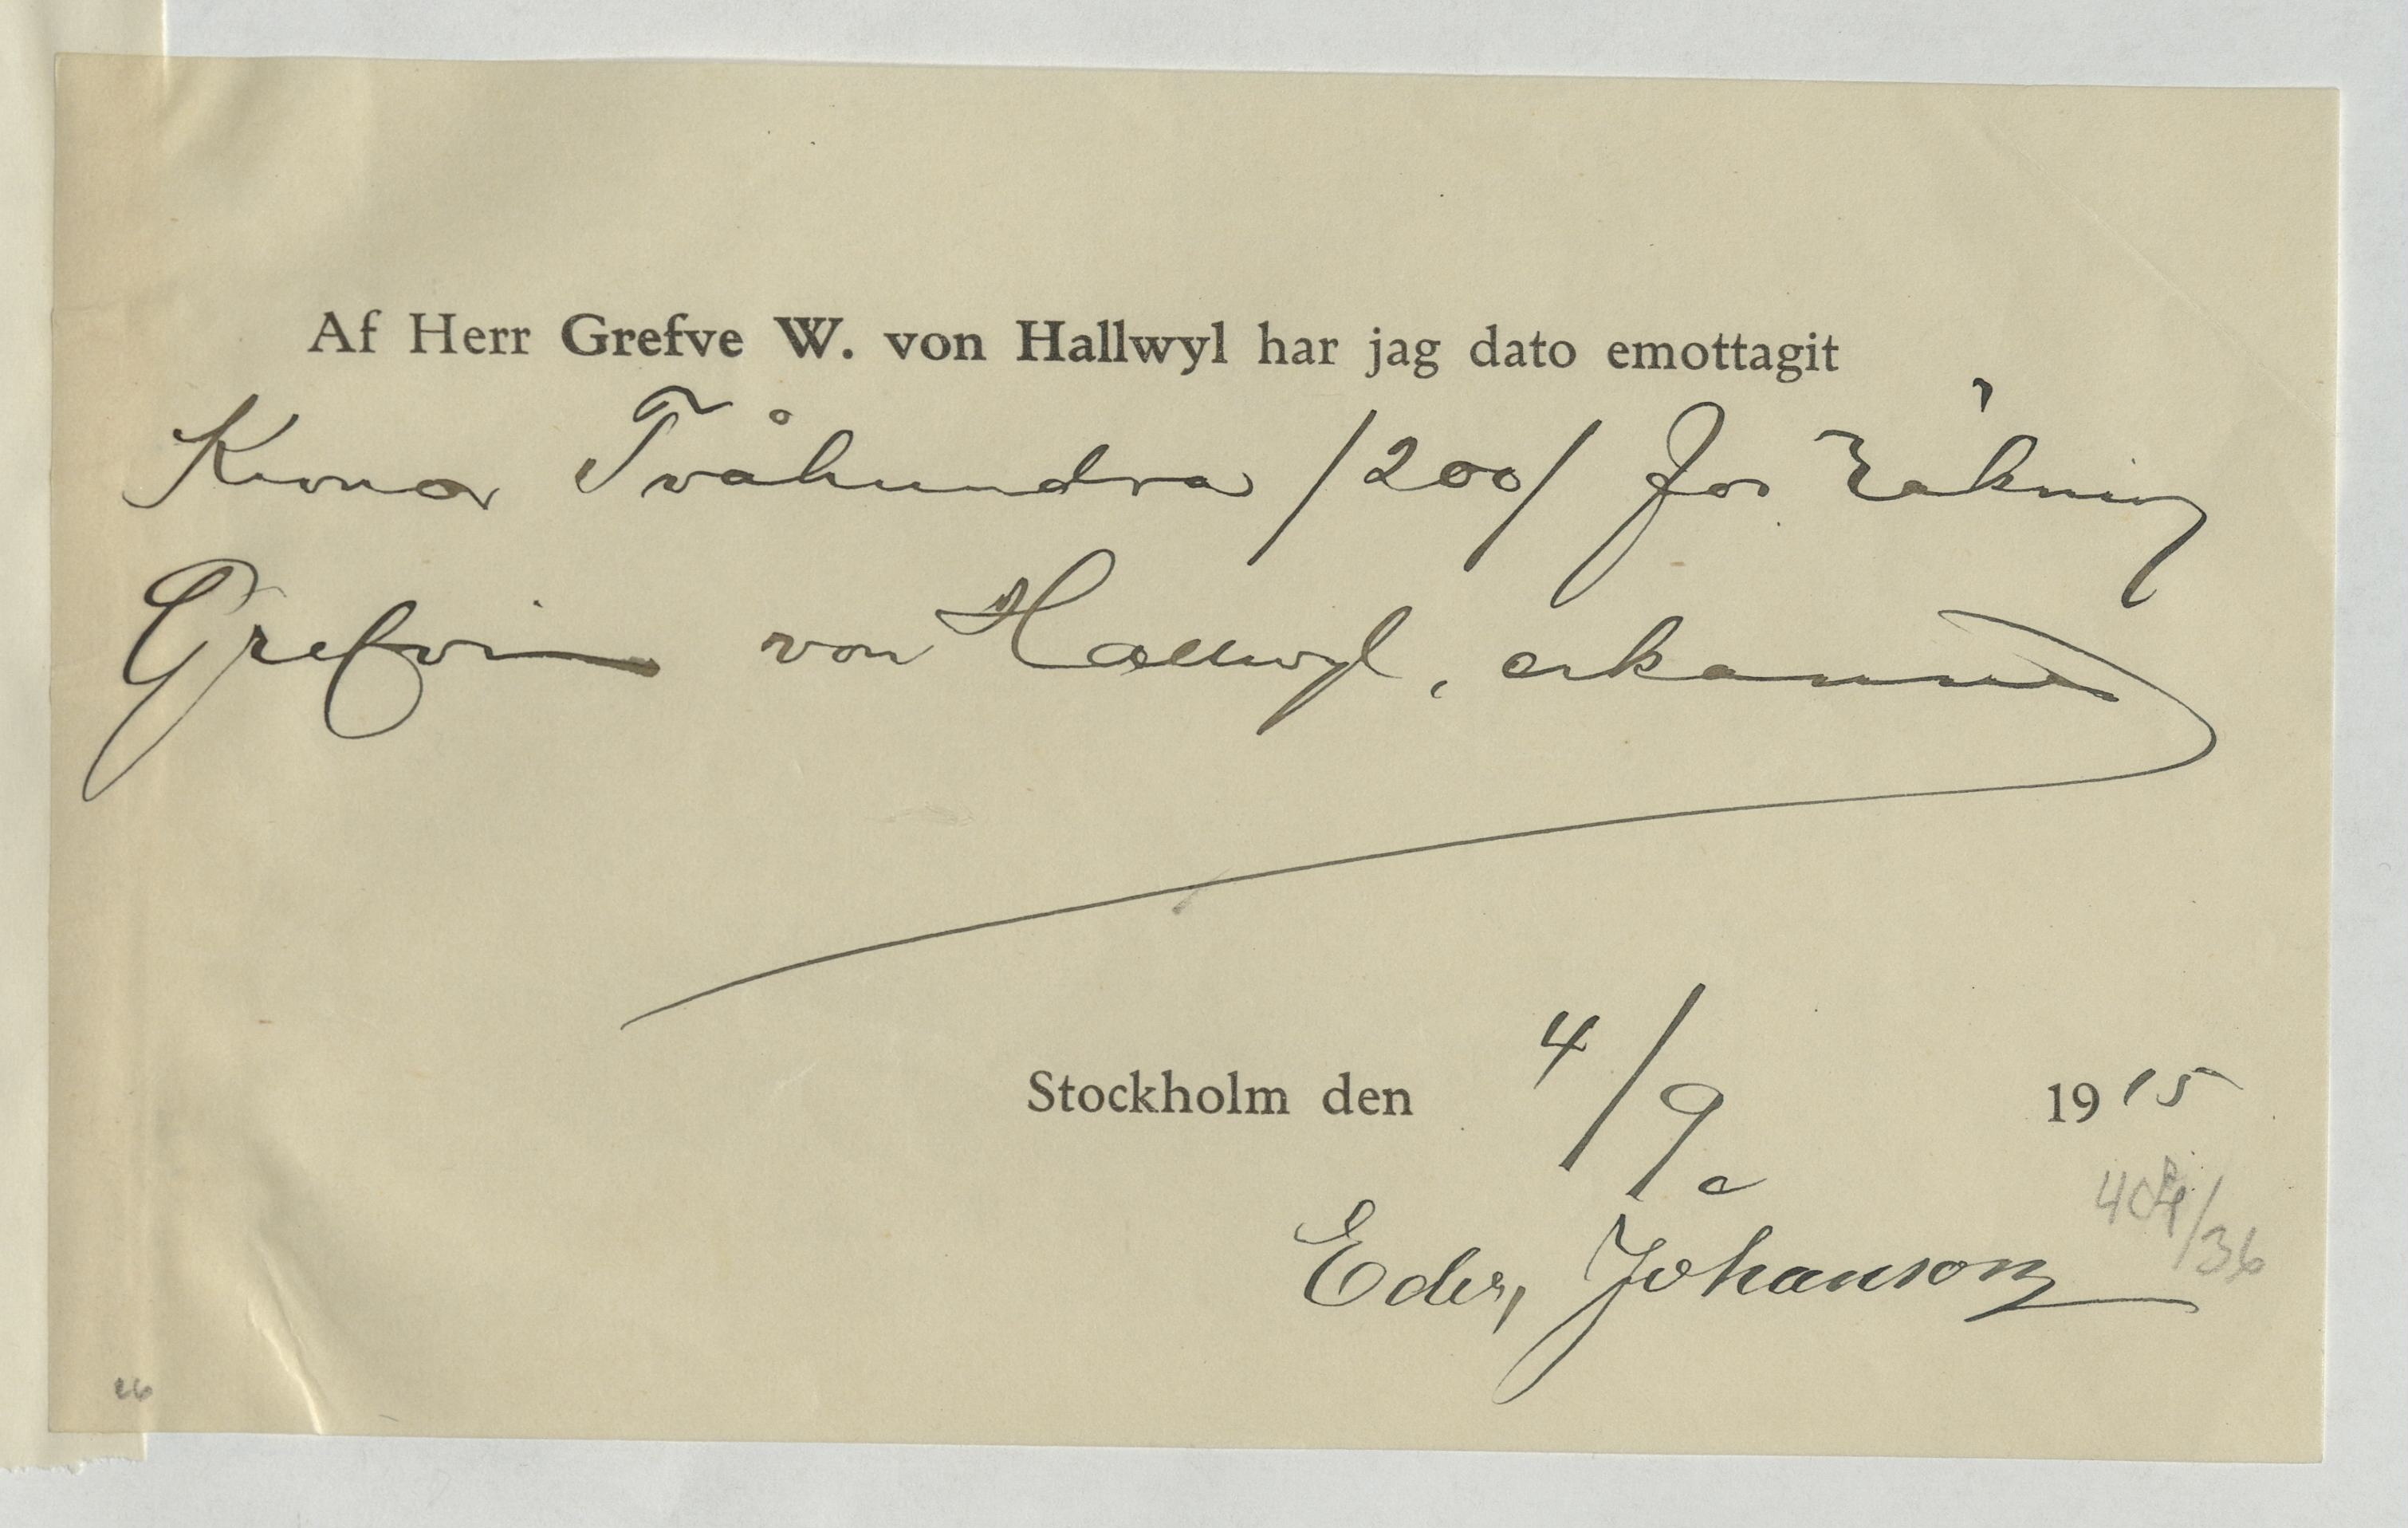 Af Herr Grefve W. von Hallwyl har jag dato emottagit
Kronor Tvåhundra /200/ för Räkning
Grefvin von Hallwyl, erkännes
Stockholm den 4/9 1915
Johanson
/36